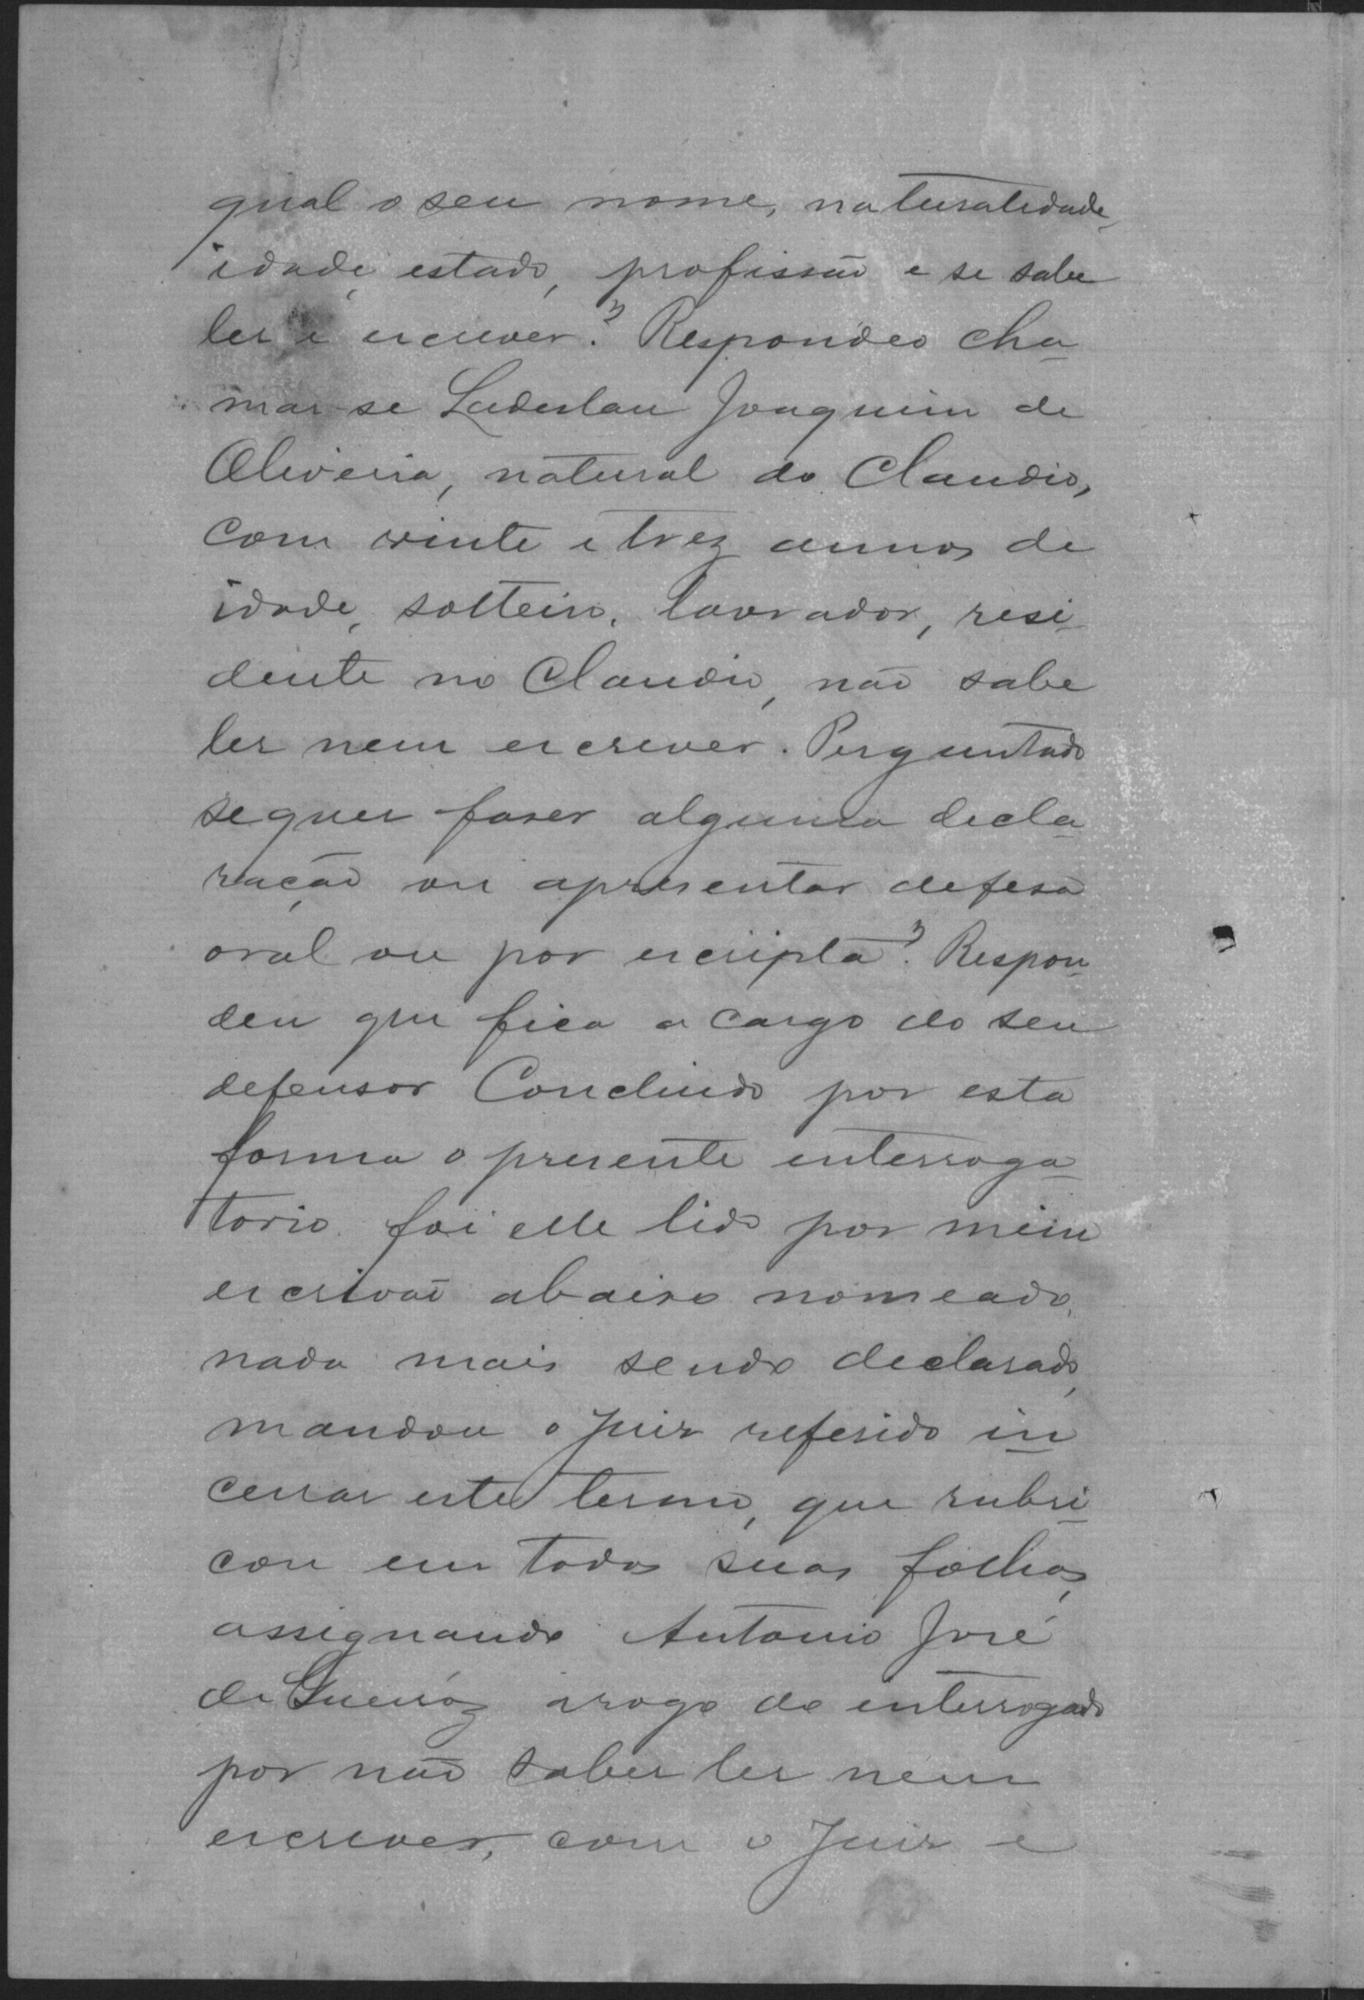 qual o seu nome, naturalidade,
idade, estado, profissão e se sabe
ler e escrever? Respondeo cha-
mar-se Ladeslau Joaquim de
Oliveira, natural do Claudio,
com vinte e trez annos de
idade, solteiro, lavrador, resi-
dente no Claudio, não sabe
ler nem escrever. Perguntado
se quer faser alguma decla-
ração ou apresentar defesa
oral ou por escripta? Respon-
deu que fica a cargo do seu
defensor Concluido por esta
forma o presente interroga-
torio foi elle lido por mim
escrivão abaixo nomeado,
nada mais sendo declarado,
mandou o Juiz referido in-
cerrar este termo, que rubri-
cou em todas suas folhas,
assignando Antonio José
de Queiróz arogo do interrogado
por não saber ler nem
escrever, com o Juiz e